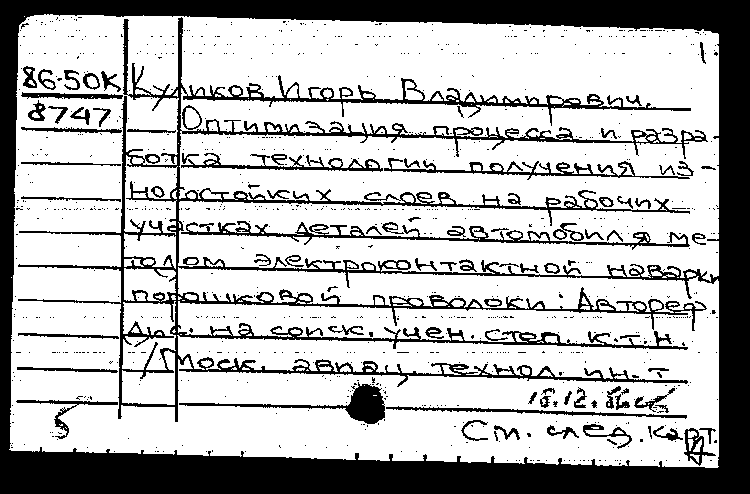 1.
86-50К Куликов, Игорь Владимирович.
8747 Оптимизация процесса и разра-
ботка технологии получения из-
носостойких слоев на рабочих
участках деталей автомобиля ме-
тодом электроконтактной наварки
порошковой проволоки: Автореф.
дис. на соиск. учен. степ. к.т.н.
/Моск. авиац. технол. ин-т
18.12.86
См. след. карт.